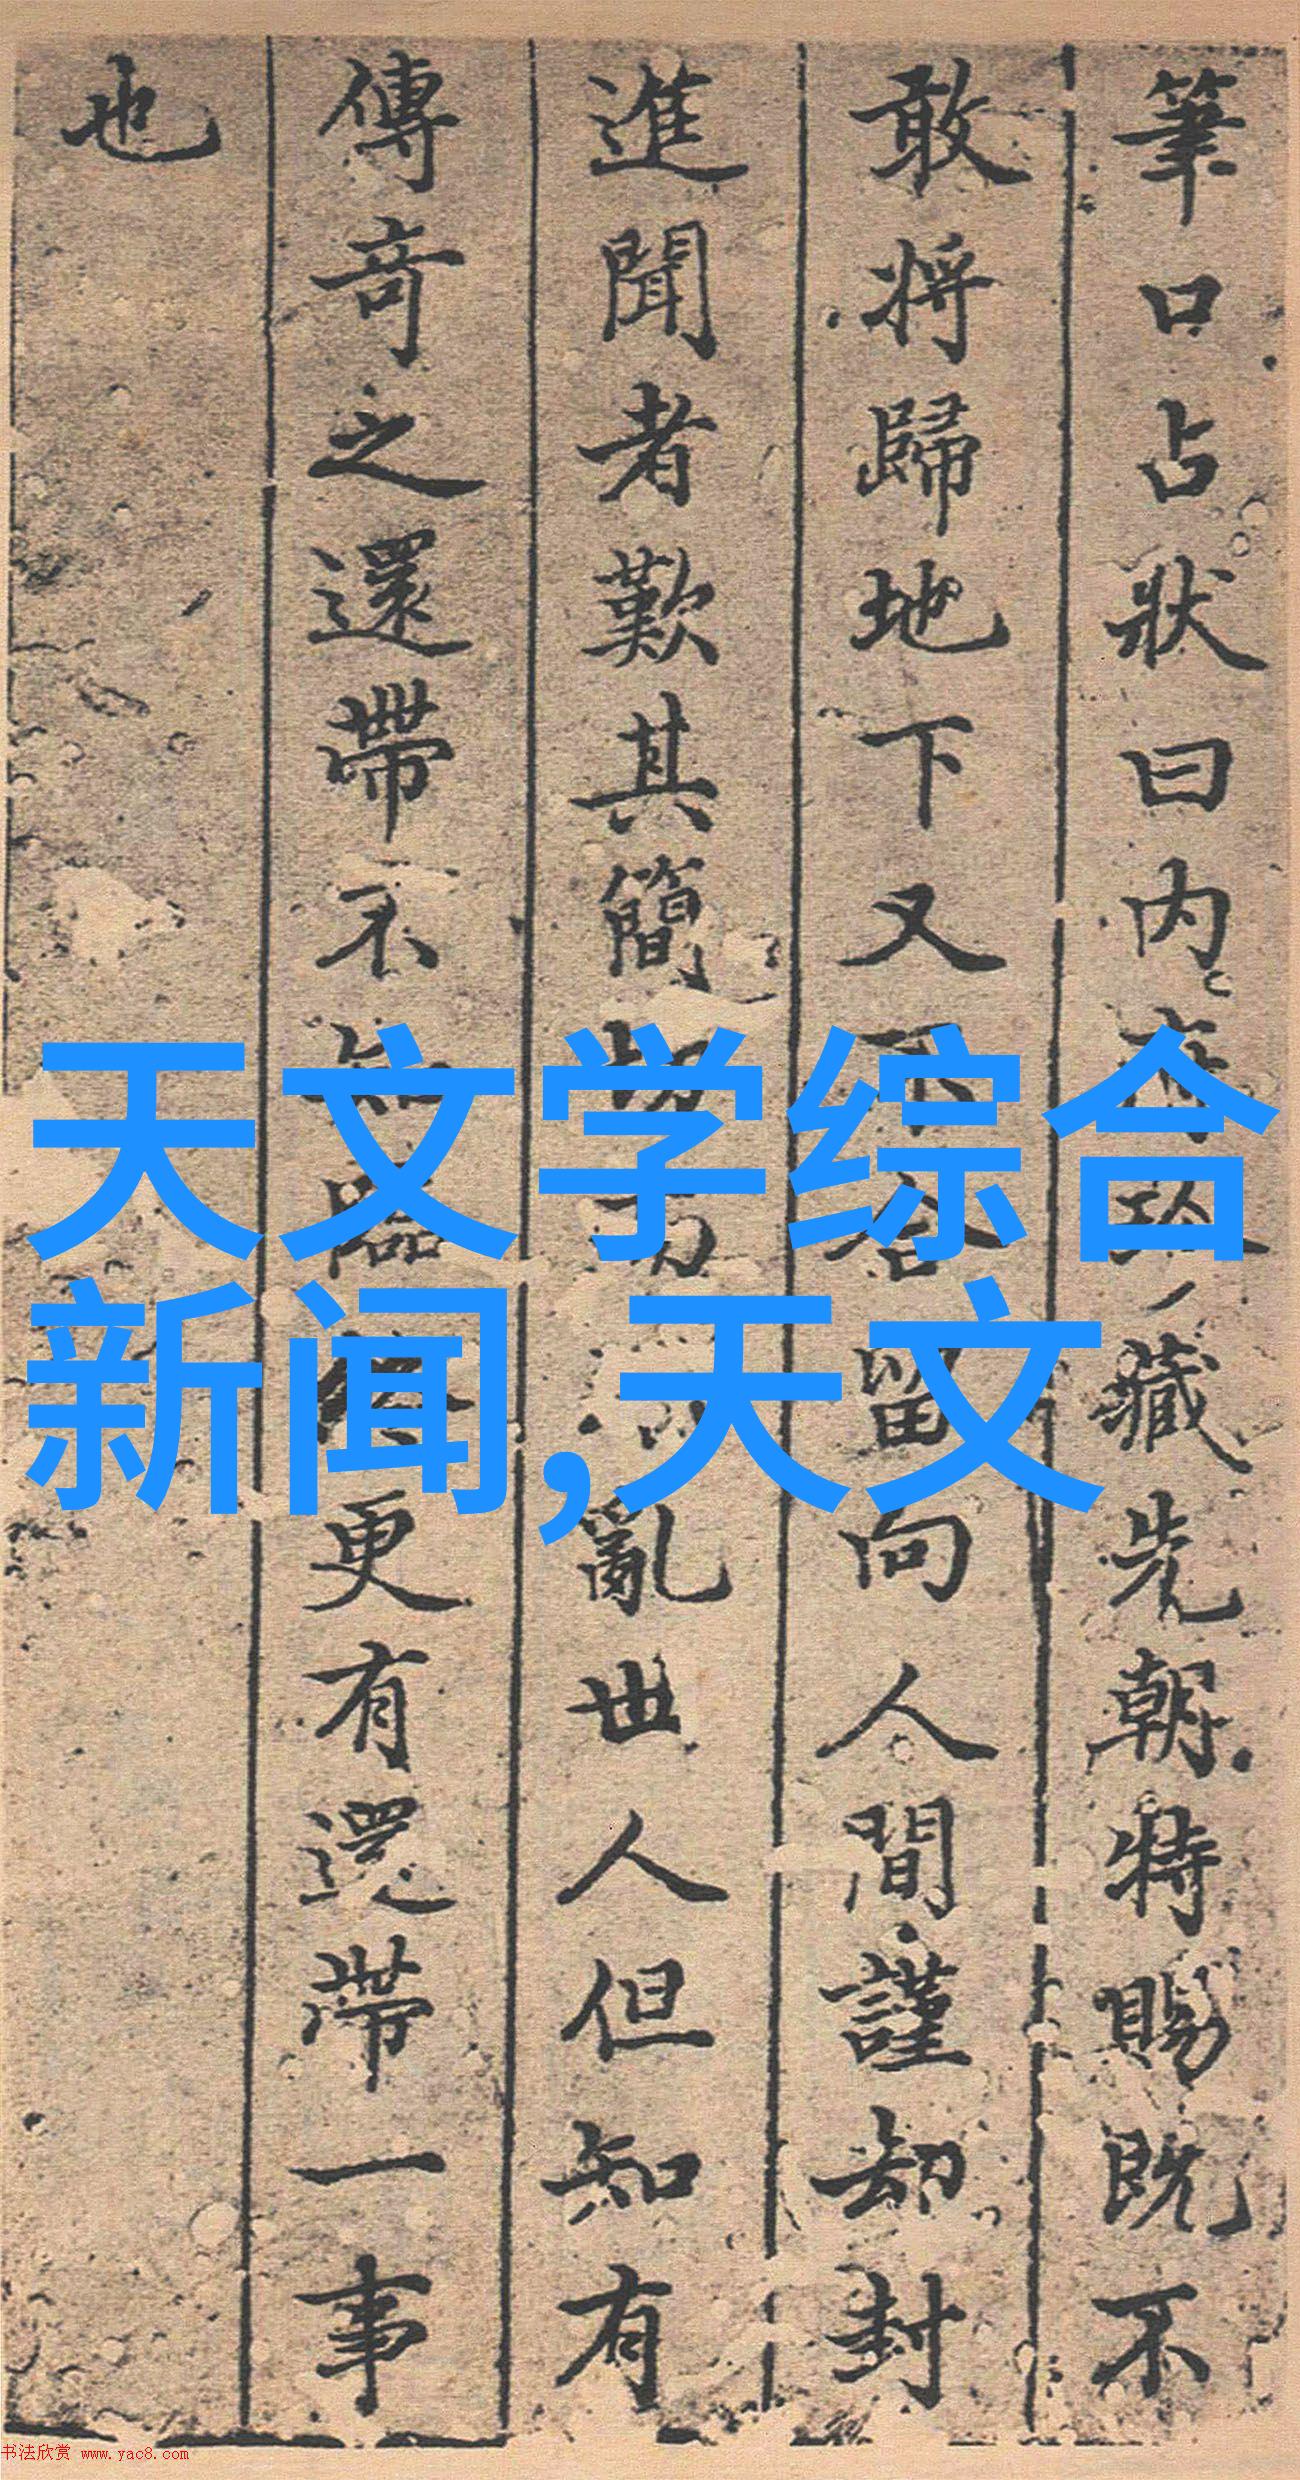 筆口占狀曰内有珍藏先朝特賜既不
敢将歸地下又不合留向人間謹却封
進聞者歎其簡切而不亂世人但知有
傳奇之還帶不知臨終更有還帶一事
也
天文学综合
新闻,天文
书法欣赏 www.yac8.com